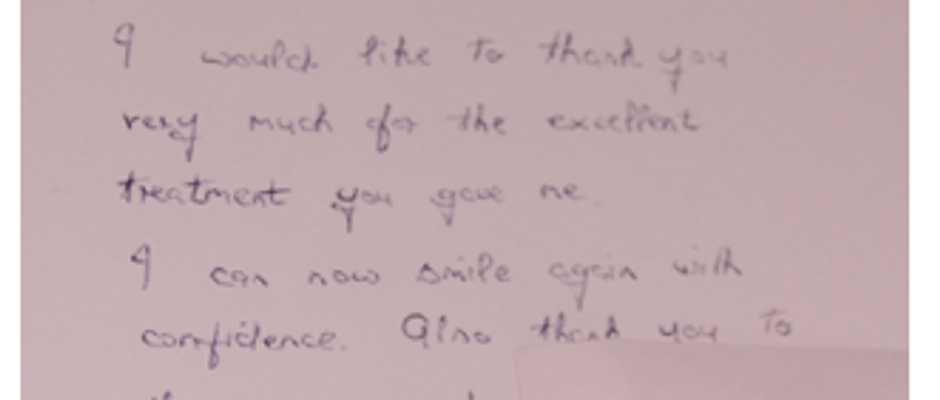 I would like to thank you
very much for the excellent
treatment you gave me.
I can now smile again with
confidence. Also thank you to